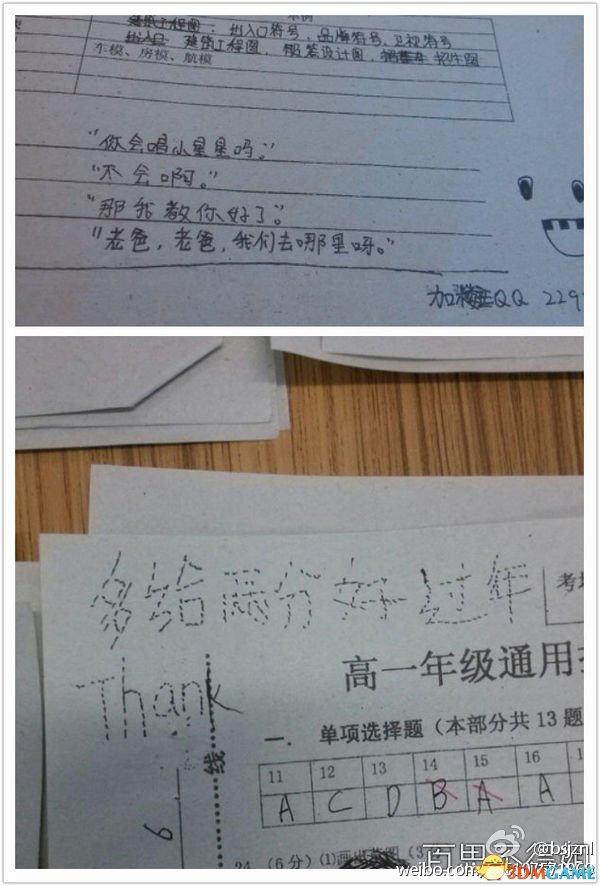 示例
建筑工程图，出入口符号、品牌符号、卫视符号
出入口 建筑工程图，服装设计图，招生图
车模、房模、航模
"你会唱小星星吗。"
"不会啊。"
"那我教你好了。"
"老爸，老爸，我们去哪里呀。"
加 QQ 229
多给两分好过年
考场
Thank
高一年级通用技
一. 单项选择题（本部分共 13 题
线
11 12 13 14 15 16 1
A C D B A A
6
24.（6分）(1)画出草图（3
百思不得姐
@bsjznl
weibo.com
3DMGAME